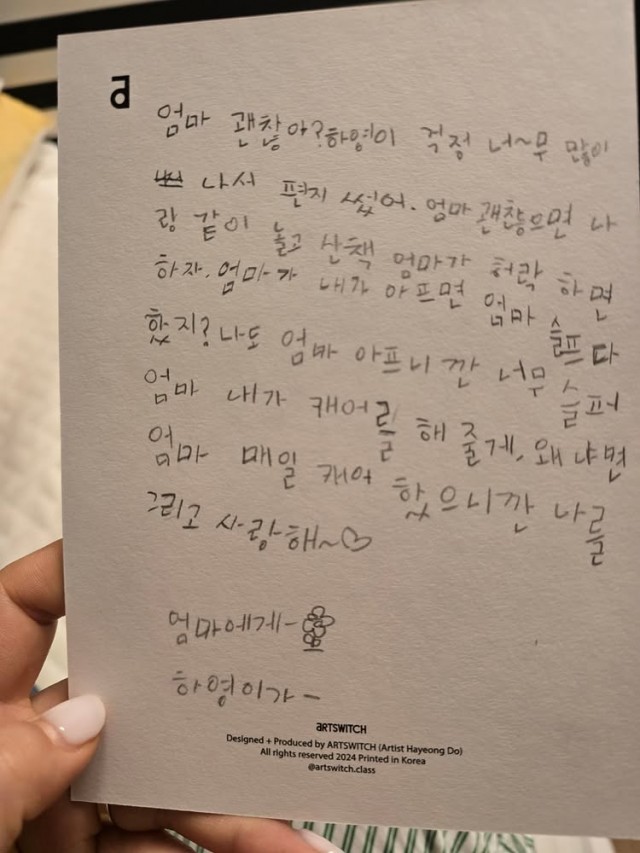 a
엄마 괜찮아? 하영이 걱정 너~무 많이
나서 편지 썼어. 엄마 괜찮으면 나
랑 같이 놀고 산책 엄마가 허락 하면
하자. 엄마가 내가 아프면 엄마 슬프다
했지? 나도 엄마 아프니 깐 너무 슬퍼
엄마 내가 캐어를 해 줄게, 왜냐면
엄마 매일 캐어 했으니깐 나를
그리고 사랑해~♡
엄마에게-
하영이가-
aRTSWITCH
Designed + Produced by ARTSWITCH (Artist Hayeong Do)
All rights reserved 2024 Printed in Korea
@artswitch.class